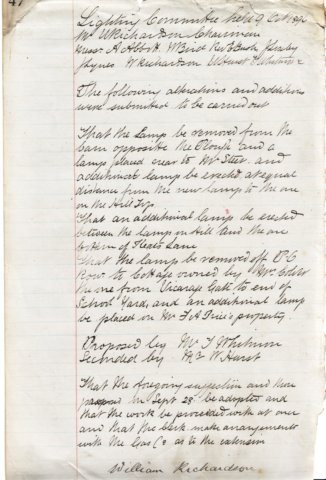 47
Lighting Committee held 9 Oct
Mr W Richardson Chairman
Messrs A Abbott W Bird Rev Bush
W Richardson W Hurst
The following alterations and additions
were submitted to be carried out
That the Lamp be removed from the
barn opposite the Plough and a
lamp placed near to Mr and
additional lamp be erected at equal
distance from the new lamp to the one
on the Hill Top
That an additional lamp be erected
between the lamp on Hill and the one
bottom of Lane
That the lamp be removed off P.C
Row to Cottage owned by Mr
the one from Vicarage Gate to end of
School Yard, and an additional lamp
be placed on Mr F A Price's property
Proposed by Mr J Whitmore
Seconded by Mr W Hurst
That the foregoing suggestion and those
in Sept 28 be adopted and
that the work be proceeded with at once
and that the Clerk make arrangements
with the Gas Co as to the extension
William Richardson